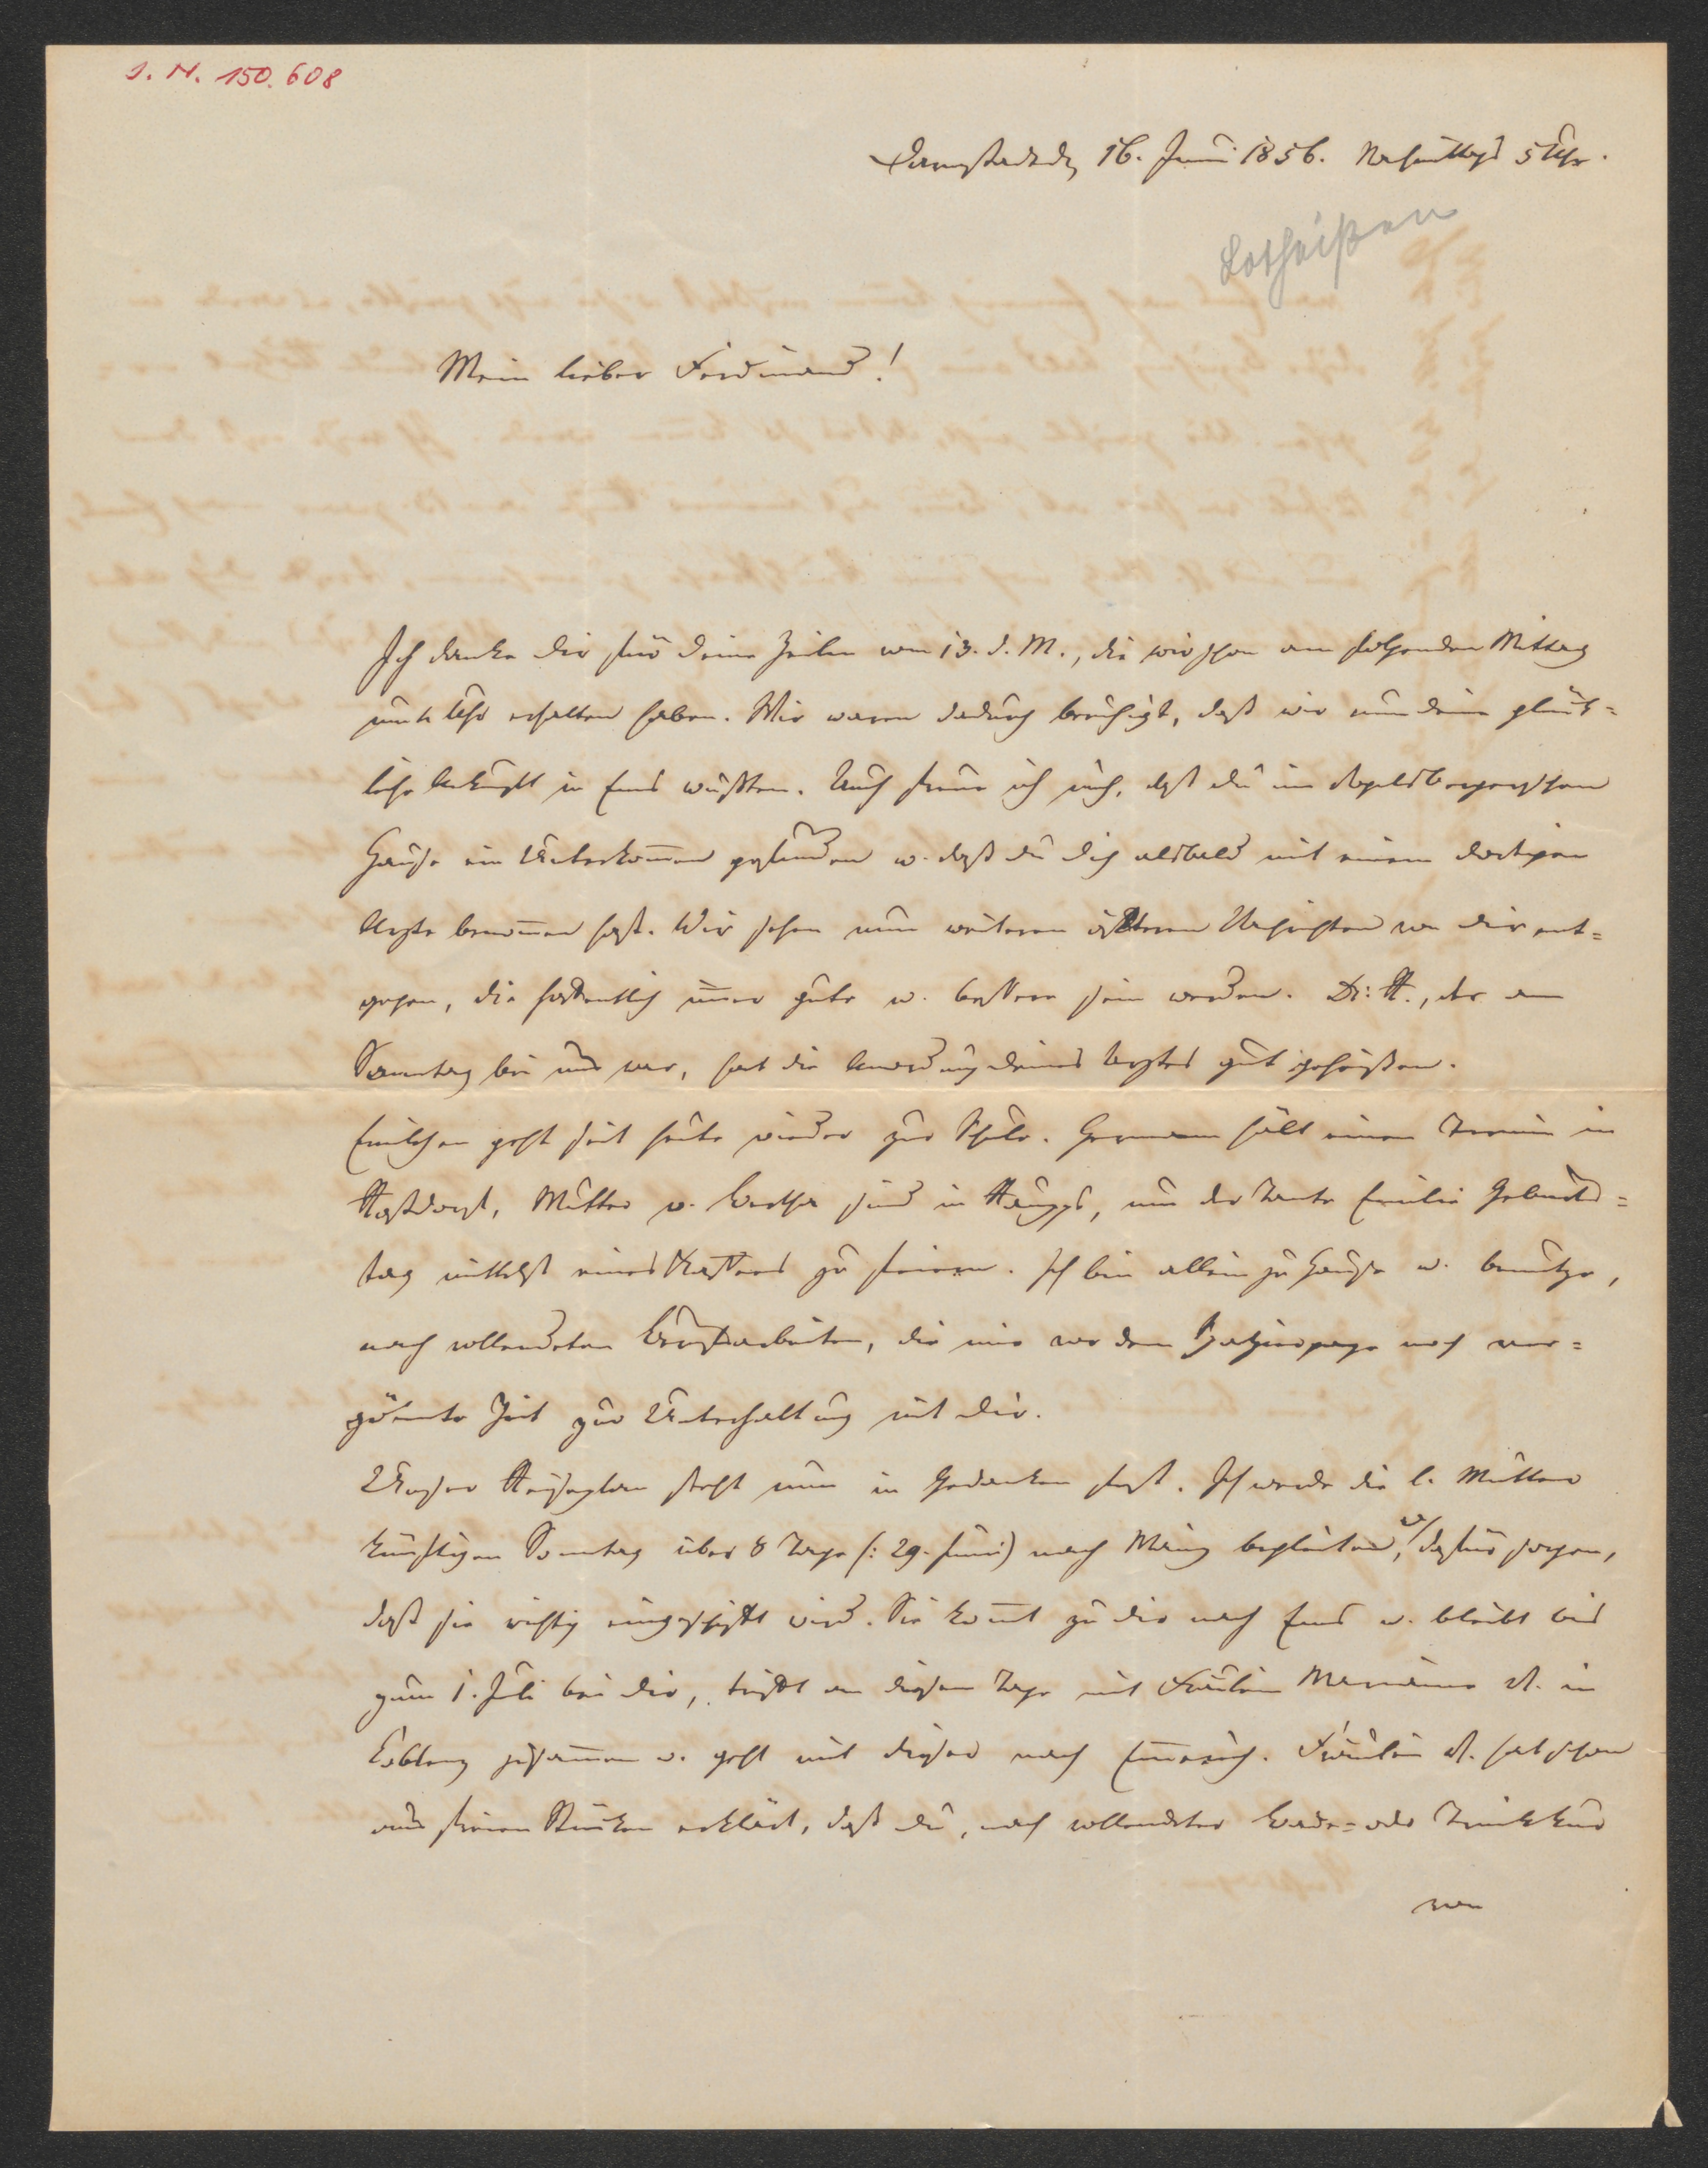 I. N. 150.608
Darmstadt, 16. Juni 1856. Nachmittags 5 Uhr.
Lotheißen
Mein lieber Ferdinand!
Ich danke dir für deine Zeilen vom 13. d. M., die wir schon am folgenden Mittag
um Uhr erhalten haben. Wir waren dadurch beruhigt, daß wir nun deine glück=
liche Ankunft in Ems wußten. Auch freue ich mich, daß du im
Hause ein Unterkom̅en gefunden u. daß du dich alsbald mit einem dortigen
Arzte benom̅en hast. Wir sehen nun weiteren öfteren Nachrichten von dir ent=
gegen, die hoffentlich im̅er gute u. bessere sein werden. Dr. H., der am
Sonntag bei uns war, hat die Anordnung deines Arztes gut geheißen.
Emilchen geht seit heute wieder zur Schule. Hermann hält einen Termin in
Roßdorf, Mutter u. Bertha sind in, um der Tante Emilie Geburts=
tag mittelst eines Kaffees zu feiern. Ich bin allein zu Hause u. benutze,
nach vollendeten Berufsarbeiten, die mir vor dem noch ver=
gönnte Zeit zur Unterhaltung mit dir.
Unser Reiseplan steht nun in Gedanken fest. Ich werde die l. Mutter
künftigen Sonntag über 8 Tage (: 29. Juni) nach Mainz begleiten, u. dafür sorgen,
daß sie richtig eingeschifft wird. Sie kom̅t zu dir nach Ems u. bleibt bis
zum 1. Juli bei dir, trifft an diesem Tage mit Fräulein Marianne A. in
Coblenz zusam̅en u. geht mit dieser nach Em̅erich. Fräulein A. hat schon
aus freien Stücken erklärt, daß du, nach vollendeter Bade= oder Trinkkur
von